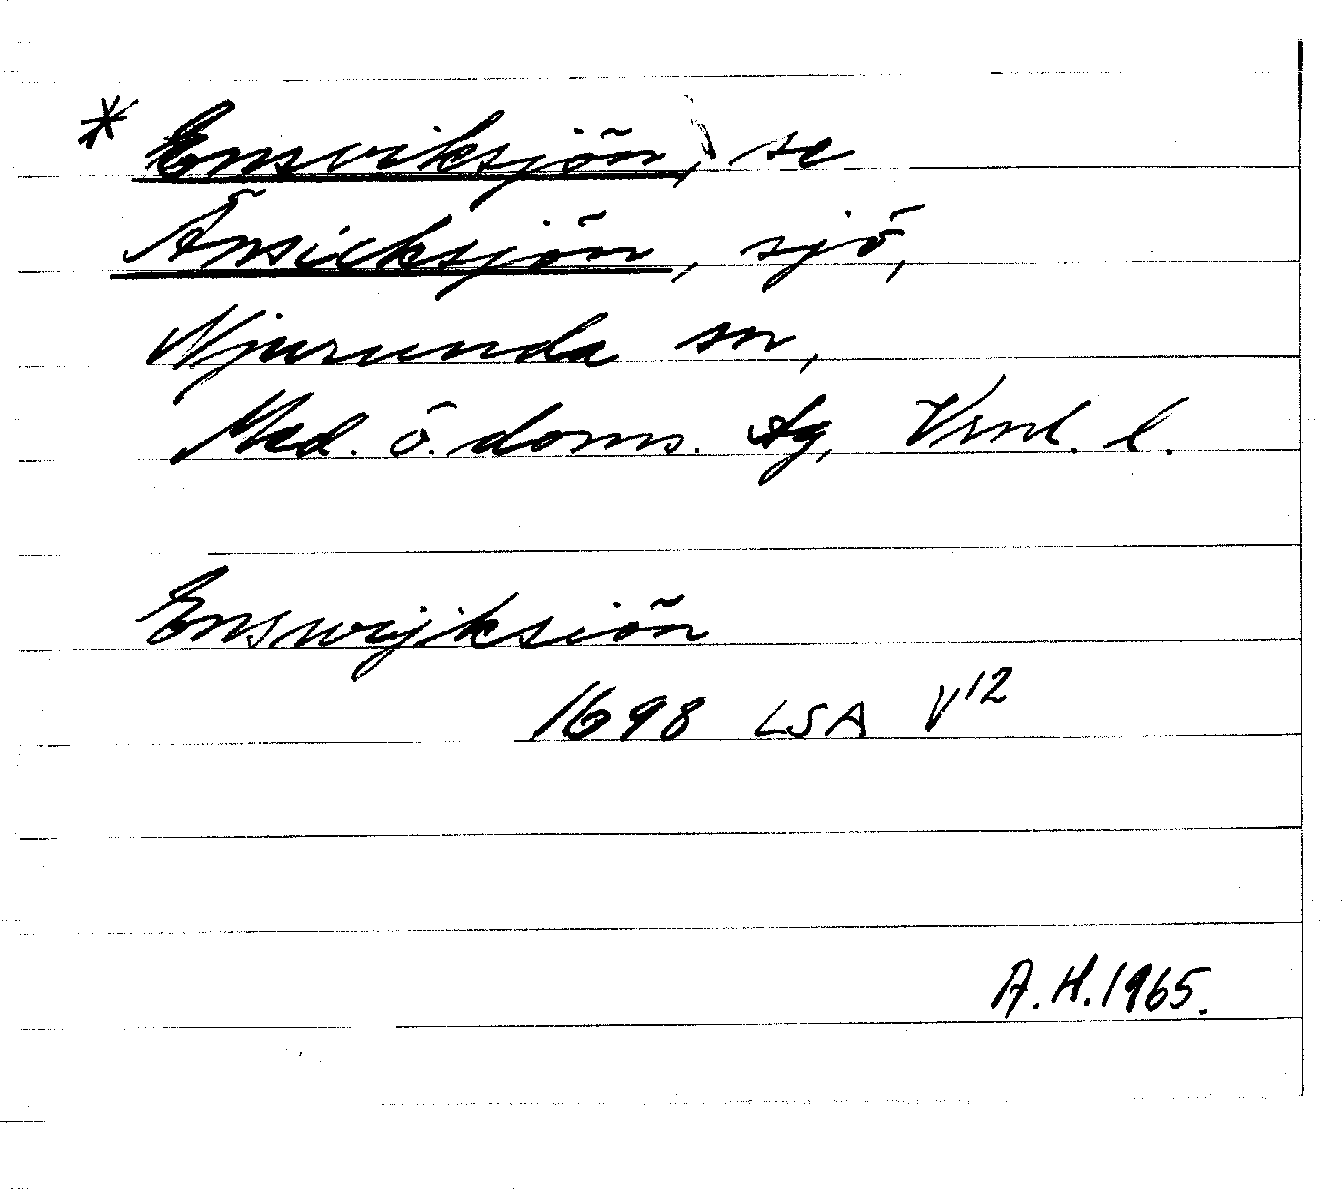 * Ensviksjön, se
Änsicksjön, sjö,
Njurunda sn,
Med. ö. doms. tg, Vrnl. l.
Enswijksiön
1698 LSA V12
A.H. 1965.